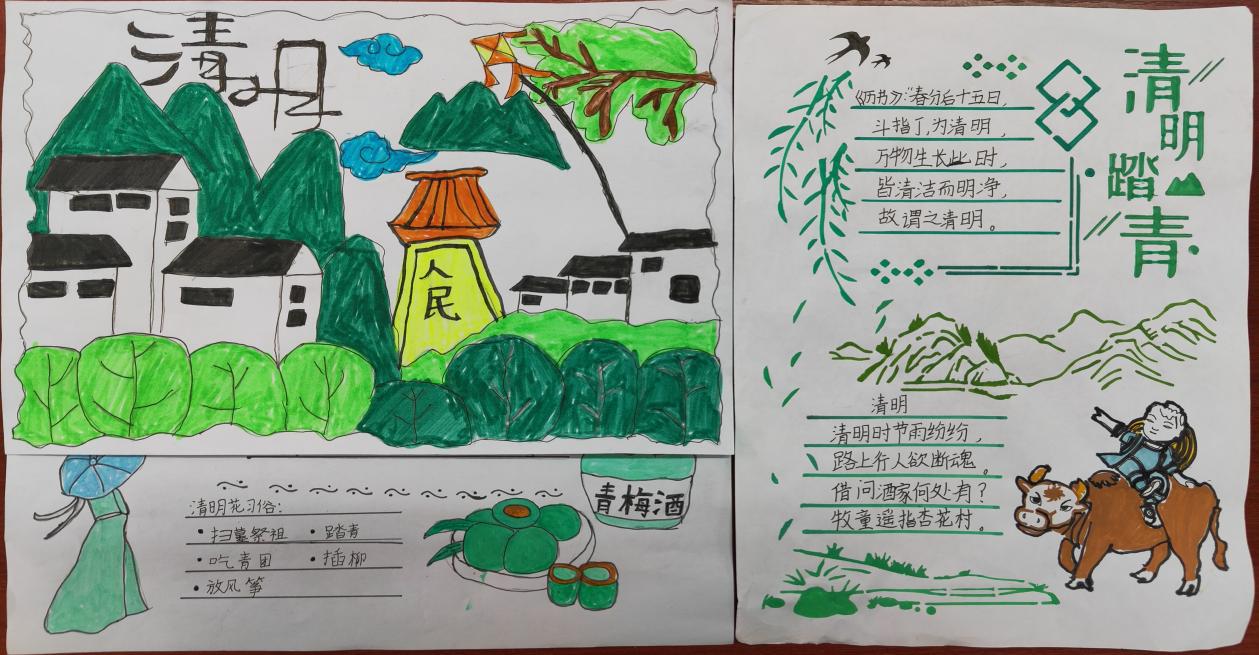 清明
人民
清明花习俗:
•扫墓祭祖 •踏青
•吃青团 •插柳
•放风筝
青梅酒
清明
踏青
《历书》:"春分后十五日,
斗指丁,为清明,
万物生长此时,
皆清洁而明净,
故谓之清明。
清明
清明时节雨纷纷,
路上行人欲断魂。
借问酒家何处有?
牧童遥指杏花村。